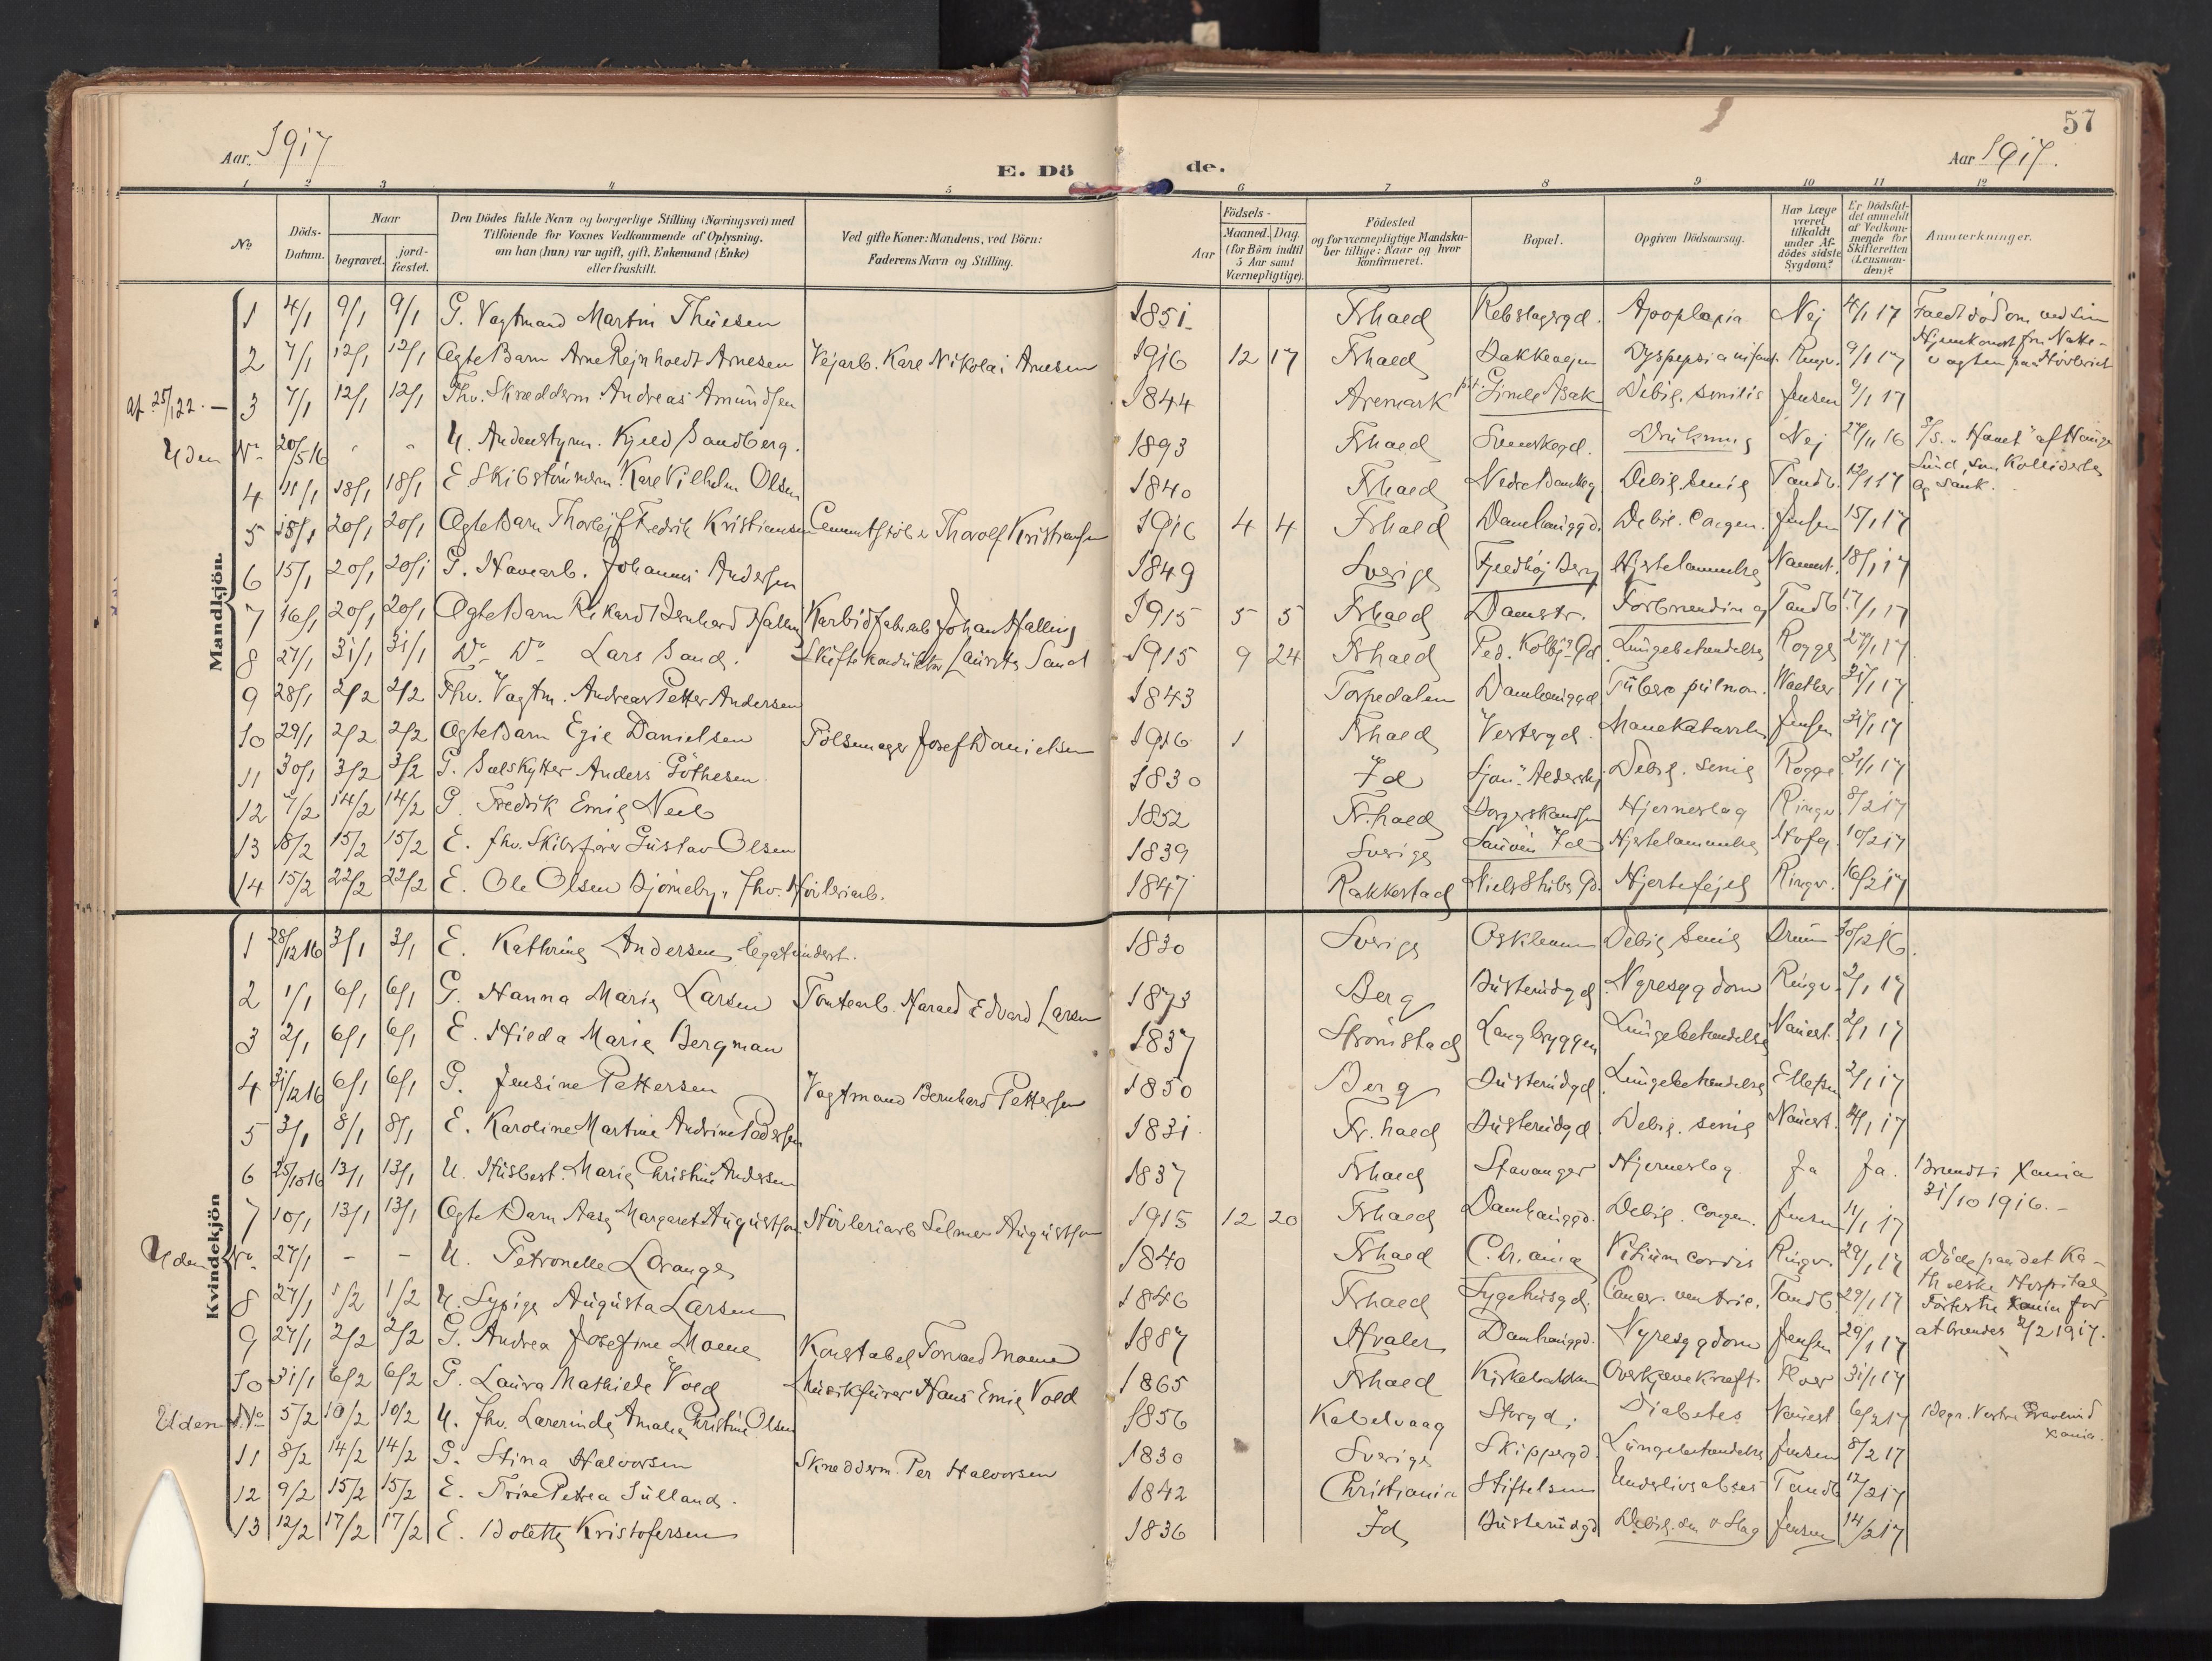 57
Aar. 1917
E. Döde.
Aar 1917.
1 2 3 4 5 6 7 8 9 10 11 12
No.
Döds-Datum.
Naar
begravet.
jord-fæstet.
Den Dödes fulde Navn og borgerlige Stilling (Næringsvei) med
Tilföiende för Voxnes Vedkommende af Oplysning,
om han (hun) var ugift, gift, Enkemand (Enke)
eller fraskilt.
Ved gifte Koner: Mandens, ved Börn:
Faderens Navn og Stilling.
Födsels-
Aar
Maaned. Dag.
(for Börn indtil
5 Aar samt
Værnepligtige).
Födested
og for værnepligtige Mandska-
ber tillige: Naar og hvor
konfirmeret.
Bopæl.
Opgiven Dödsaarsag.
Har Læge
været
tilkaldt
under Af-
dödes sidste
Sygdom?
Er Dödsfal-
det anmeldt
af Vedkom-
mende for
Skifteretten
(Lensman-
den)?
Anmærkninger.
Mandkjön.
1 4/1 9/1 9/1 G. Vagtmand Martin Thüesen 1851 Frhald Rebslagergd. Apoplexia Nej 4/1 17
2 7/1 12/1 12/1 Ægte Barn Arne Rejnholdt Arnesen Vejarb. Karl Nikolai Arnesen 1916 12 17 Frhald Bakkeagen Dyspepsia infant. Ringv. 9/1 17
3 7/1 12/1 12/1 Fhv. Skrædderm Andreas Amundsen 1844 Aremark Gimle Asak Debil. senilis Jensen 9/1 17
Uden No. 20/5 16 " " U. Andenstyrm. Kjeld Sandberg. 1893 Frhald Svenskegd. Drukning Nej 27/11 16 S/S. "Hauet" af Hauge
sund, som kolliderte
og sank.
4 11/1 18/1 18/1 E Skibstömmerm. Karl Vilhelm Olsen 1840 Frhald Nedre Bankeg. Debil. senil Tandb. 12/1 17
5 15/1 20/1 20/1 Ægte Barn Thorlejf Fredrik Kristiansen Cementstöber Thorolf Kristiansen 1916 4 4 Frhald Damhauggd. Debil. congen. Jensen 15/1 17
6 15/1 20/1 20/1 G. Havearb. Johannes Andersen 1849 Sverige Fjeldhöj Berg Hjertelammelse Nauest. 18/1 17
7 16/1 20/1 20/1 Ægte Barn Rikard Bernhard Halling Karbidfabarb Johan Halling 1915 5 5 Frhald Damstr. Forbrænding Tandb. 17/1 17
8 27/1 31/1 31/1 Do Do Lars Sand. Skiftekonduktör Lauritz Sand 1915 9 24 Frhald Ped. Kolbj. Gd Lungebetændelse Rogge 27/1 17
9 28/1 2/2 2/2 Fhv. Vagtm. Andreas Petter Andersen 1843 Torpedalen Damhauggd Tuberc. pulmon. Walther 31/1 17
10 29/1 2/2 2/2 Ægte Barn Egil Danielsen Pölsemager Josef Danielsen 1916 1 Frhald Vestergd. Mavekatarrh Jensen 31/1 17
11 30/1 3/2 3/2 G. Sælskytter Anders Göthesen 1830 Id Debil. senil Rogge 31/1 17
12 7/2 14/2 14/2 G Fredrik Emil Neeb 1852 Fr.hald Borgerskandsen Hjerneslag Ringv 8/2 17
13 8/2 15/2 15/2 E. fhv. Skibsförer Gustav Olsen 1839 Sverige Sauöen Id Hjertelammelse 10/2 17
14 15/2 22/2 22/2 E. Ole Olsen Björneby, fhv. Hövleriarb. 1847 Rakkestad Niels Stubs Gd. Hjertefejl Ringv. 16/2 17
Kvindekjön
1 28/12 16 3/1 3/1 E. Kathrine Andersen, legatunderst. 1830 Sverige Oskleven Debil. senil 30/12 16.
2 1/1 6/1 6/1 G. Hanna Marie Larsen Tomtearb. Harald Edvard Larsen 1873 Berg Busterudgd Nyresygdom Ringv. 2/1 17
3 2/1 6/1 6/1 E. Hilda Marie Bergman 1837 Strömstad Langbryggen Lungebetændelse Nauest. 2/1 17
4 31/12 16 6/1 6/1 G. Jensine Pettersen Vagtmand Bernhard Pettersen 1850 Berg Busterudgd Lungebetændelse Ellefsen 2/1 17
5 3/1 8/1 8/1 E. Karoline Martine Andrine Pedersen 1831 Fr.hald Busterudgd. Debil. senil Nauest. 4/1 17
6 25/10 16 13/1 13/1 U. Husbest. Marie Christine Andersen 1837 Frhald Stavanger Hjerneslag Ja Ja. Brændt i Xania
31/10 1916.-
7 10/1 13/1 13/1 Ægte Barn Aase Margaret Augustson Hövleriarb Selmer Augustson 1915 12 20 Frhald Damhauggd. Debil. congen. Jensen 11/1 17
Uden No. 27/1 - - U. Petronelle Lorange 1840 Frhald C.h.ania Vitium cordis Ringv. 29/1 17 Döde paa det Ka-
tholske Hospital
8 27/1 1/2 1/2 U. Sypige Augusta Larsen 1846 Frhald Sygehusgd. Cancer. ventric. Tandb. 29/1 17
at brændes 2/2 1917.
9 27/1 2/2 2/2 G. Andrea Josefine Moene Konstabel Torvald Moene 1887 Hvaler Damhauggd. Nyresygdom Jensen 29/1 17
10 31/1 6/2 6/2 G. Laura Mathilde Vold Musikfører Hans Emil Vold 1865 Frhald Kirkebakken Overkjævekræft. 31/1 17
Uden No 5/2 10/2 10/2 U. fhv. Lærerinde Amalie Christine Olsen 1856 Kabelvaag Storgd. Diabetes Nauest 6/2 17 Begr. Vestre Gravlund
Xania.
11 8/2 14/2 14/2 G. Stina Halvorsen Skredderm. Per Halvorsen 1830 Sverige Skippergd. Lungebetændelse Jensen 8/2 17
12 9/2 15/2 15/2 E. Trine Petrea Sulland. 1842 Christiania Stiftelsen Underlivsabces Tandb 12/2 17
13 12/2 17/2 17/2 E. Bolette Kristofersen 1836 Id Busterudgd Debil. sen Slag Jensen 14/2 17